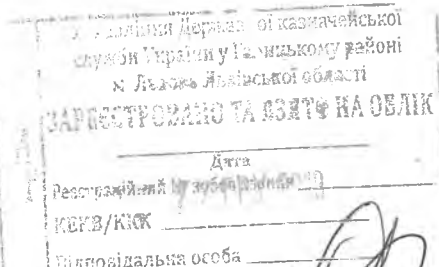 Управління Державної казначейської
служби України у Галицькому районі
м. Львова Львівської області
ЗАРЕЄСТРОВАНО ТА ВЗЯТО НА ОБЛІК
Дата
Реєстраційний № зобов'язання
КЕКВ/КПК
Відповідальна особа